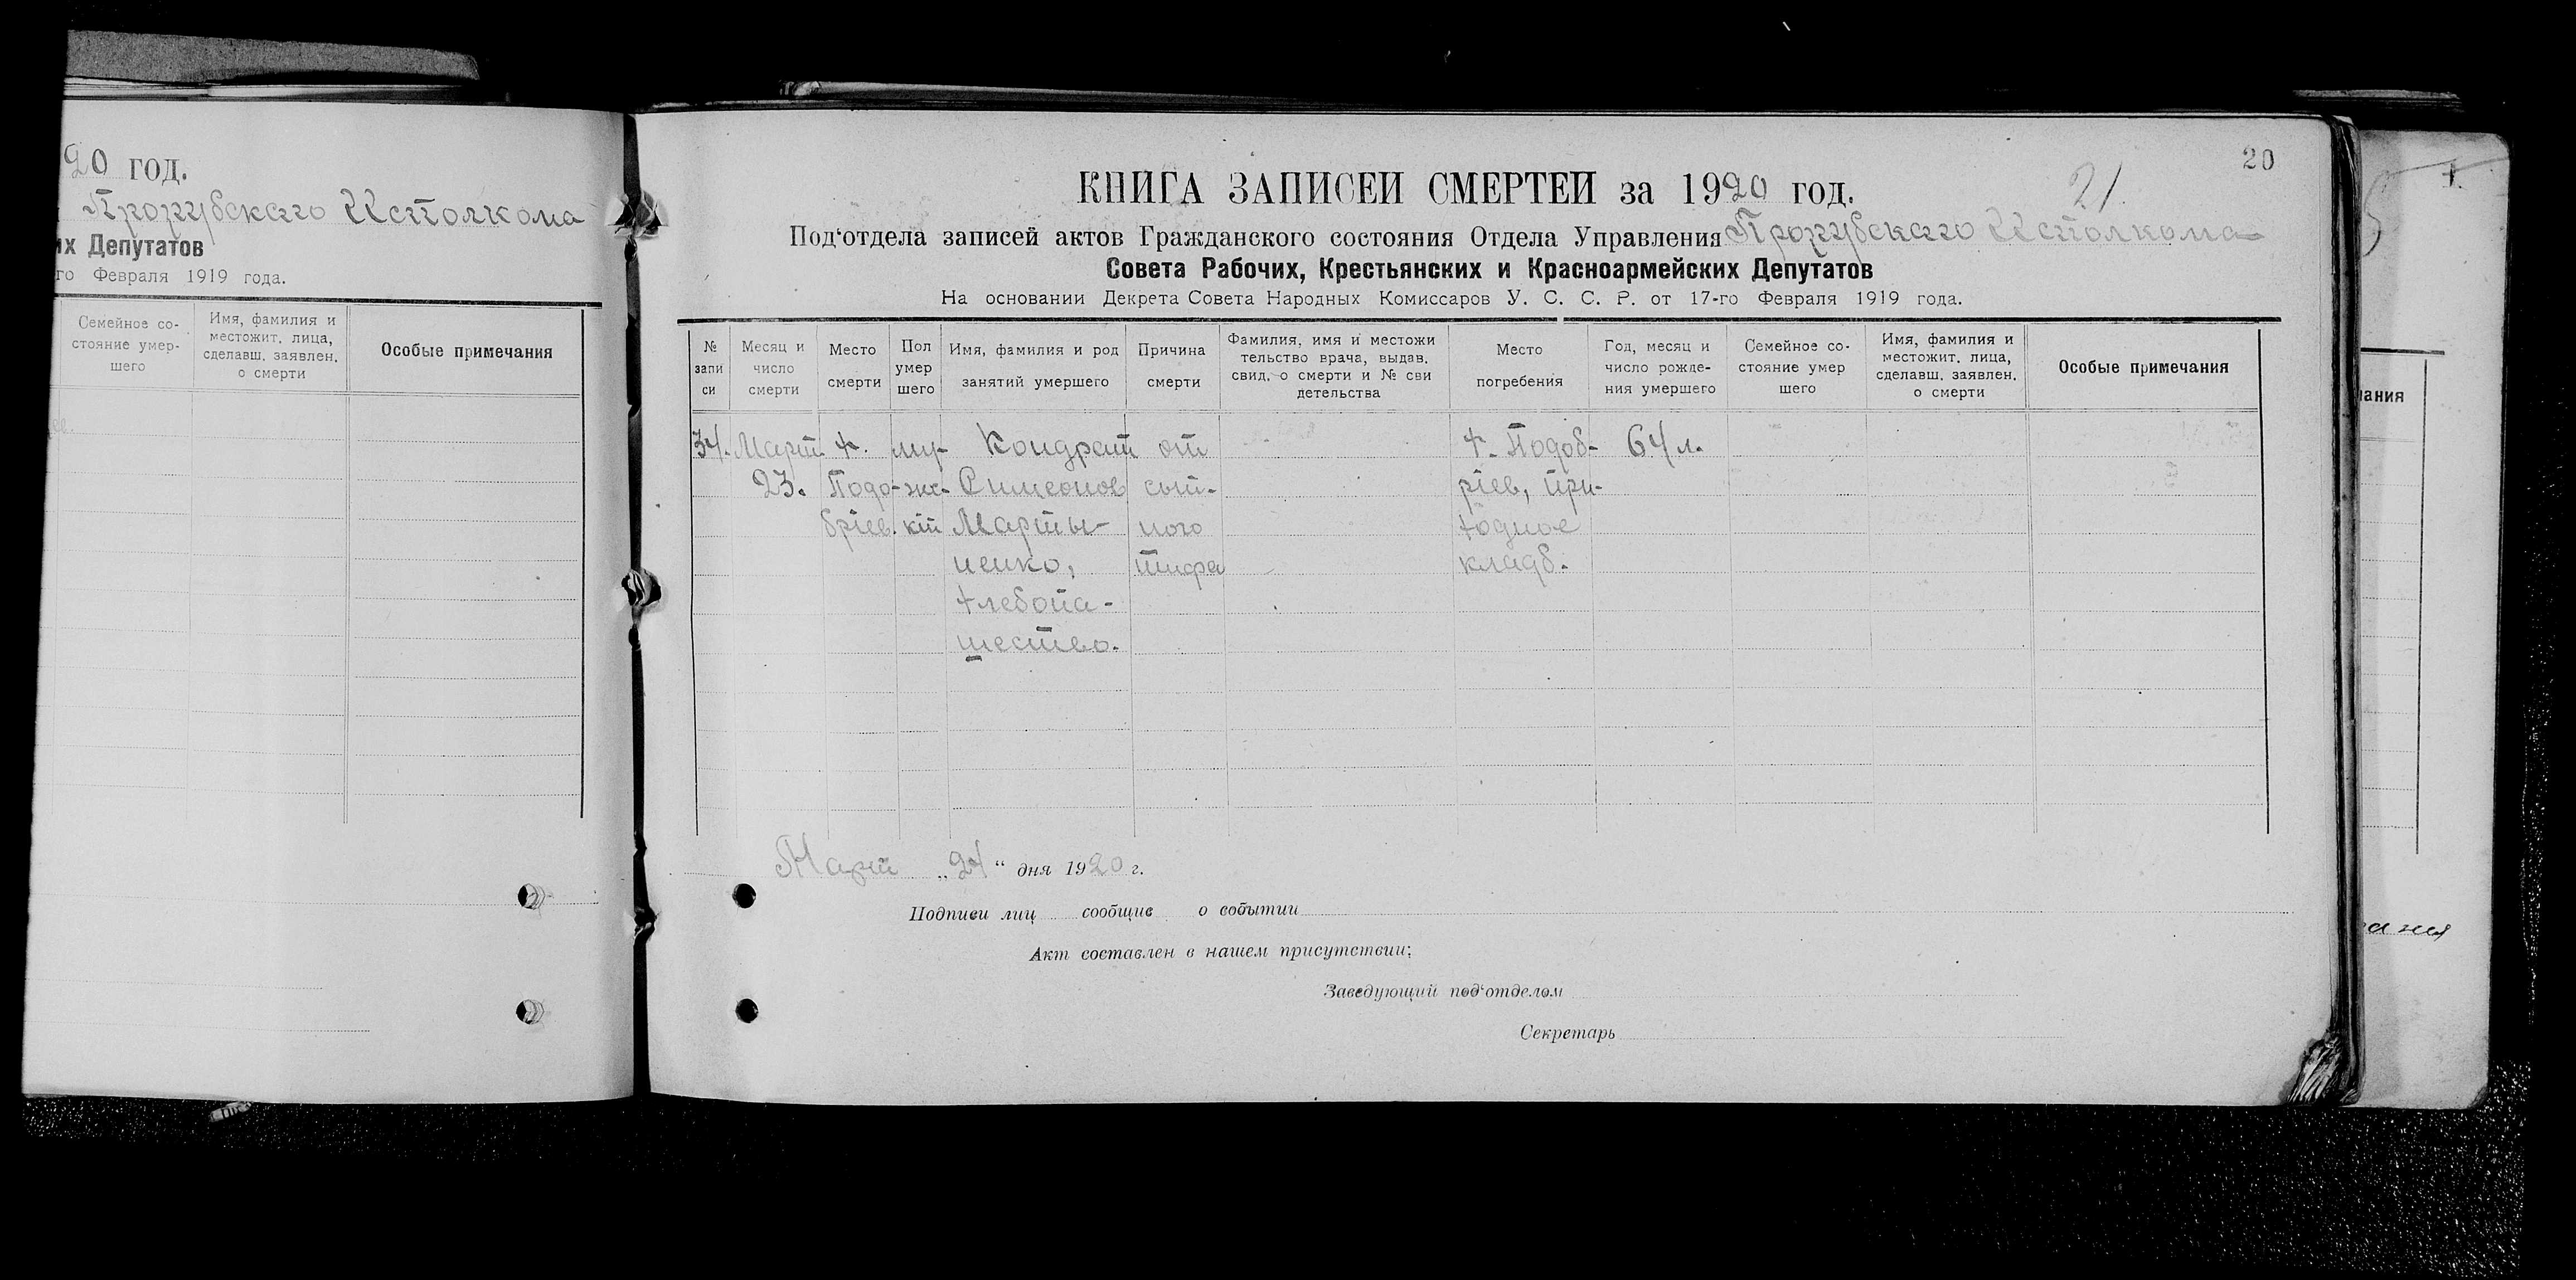 20 год.
Прорубского Исполкома
их Депутатов
го Февраля 1919 года.
Семейное со-
стояние умер-
шего
Имя, фамилия и
местожит. лица,
сделавш. заявлен.
о смерти
Особые примечания
20
21.
КНИГА ЗАПИСЕЙ СМЕРТЕЙ за 1920 год.
Под‘отдела записей актов Гражданского состояния Отдела Управления Прорубского Исполкома
Совета Рабочих, Крестьянских и Красноармейских Депутатов
На основании Декрета Совета Народных Комиссаров У. С. С. Р. от 17-го Февраля 1919 года.
№
запи
си
Месяц и
число
смерти
Место
смерти
Пол
умер
шего
Имя, фамилия и род
занятий умершего
Причина
смерти
Фамилия, имя и местожи
тельство врача, выдав.
свид. о смерти и № сви
детельства
Место
погребения
Год, месяц и
число рожде-
ния умершего
Семейное со-
стояние умер
шего
Имя, фамилия и
местожит. лица,
сделавш. заявлен.
о смерти
Особые примечания
34.
Март
23.
х.
Подо-
бріев.
му-
жс-
кій
Кондрат
Симеонов
Марты-
ненко,
хлебопа-
шество.
от
сып-
ного
тифа
х. Подоб-
ріев, при-
ходное
кладб.
64 л.
Март „24“ дня 1920 г.
Подписи лиц сообщив о событии
Акт составлен в нашем присутствии:
Заведующий под‘отделом
Секретарь
ания